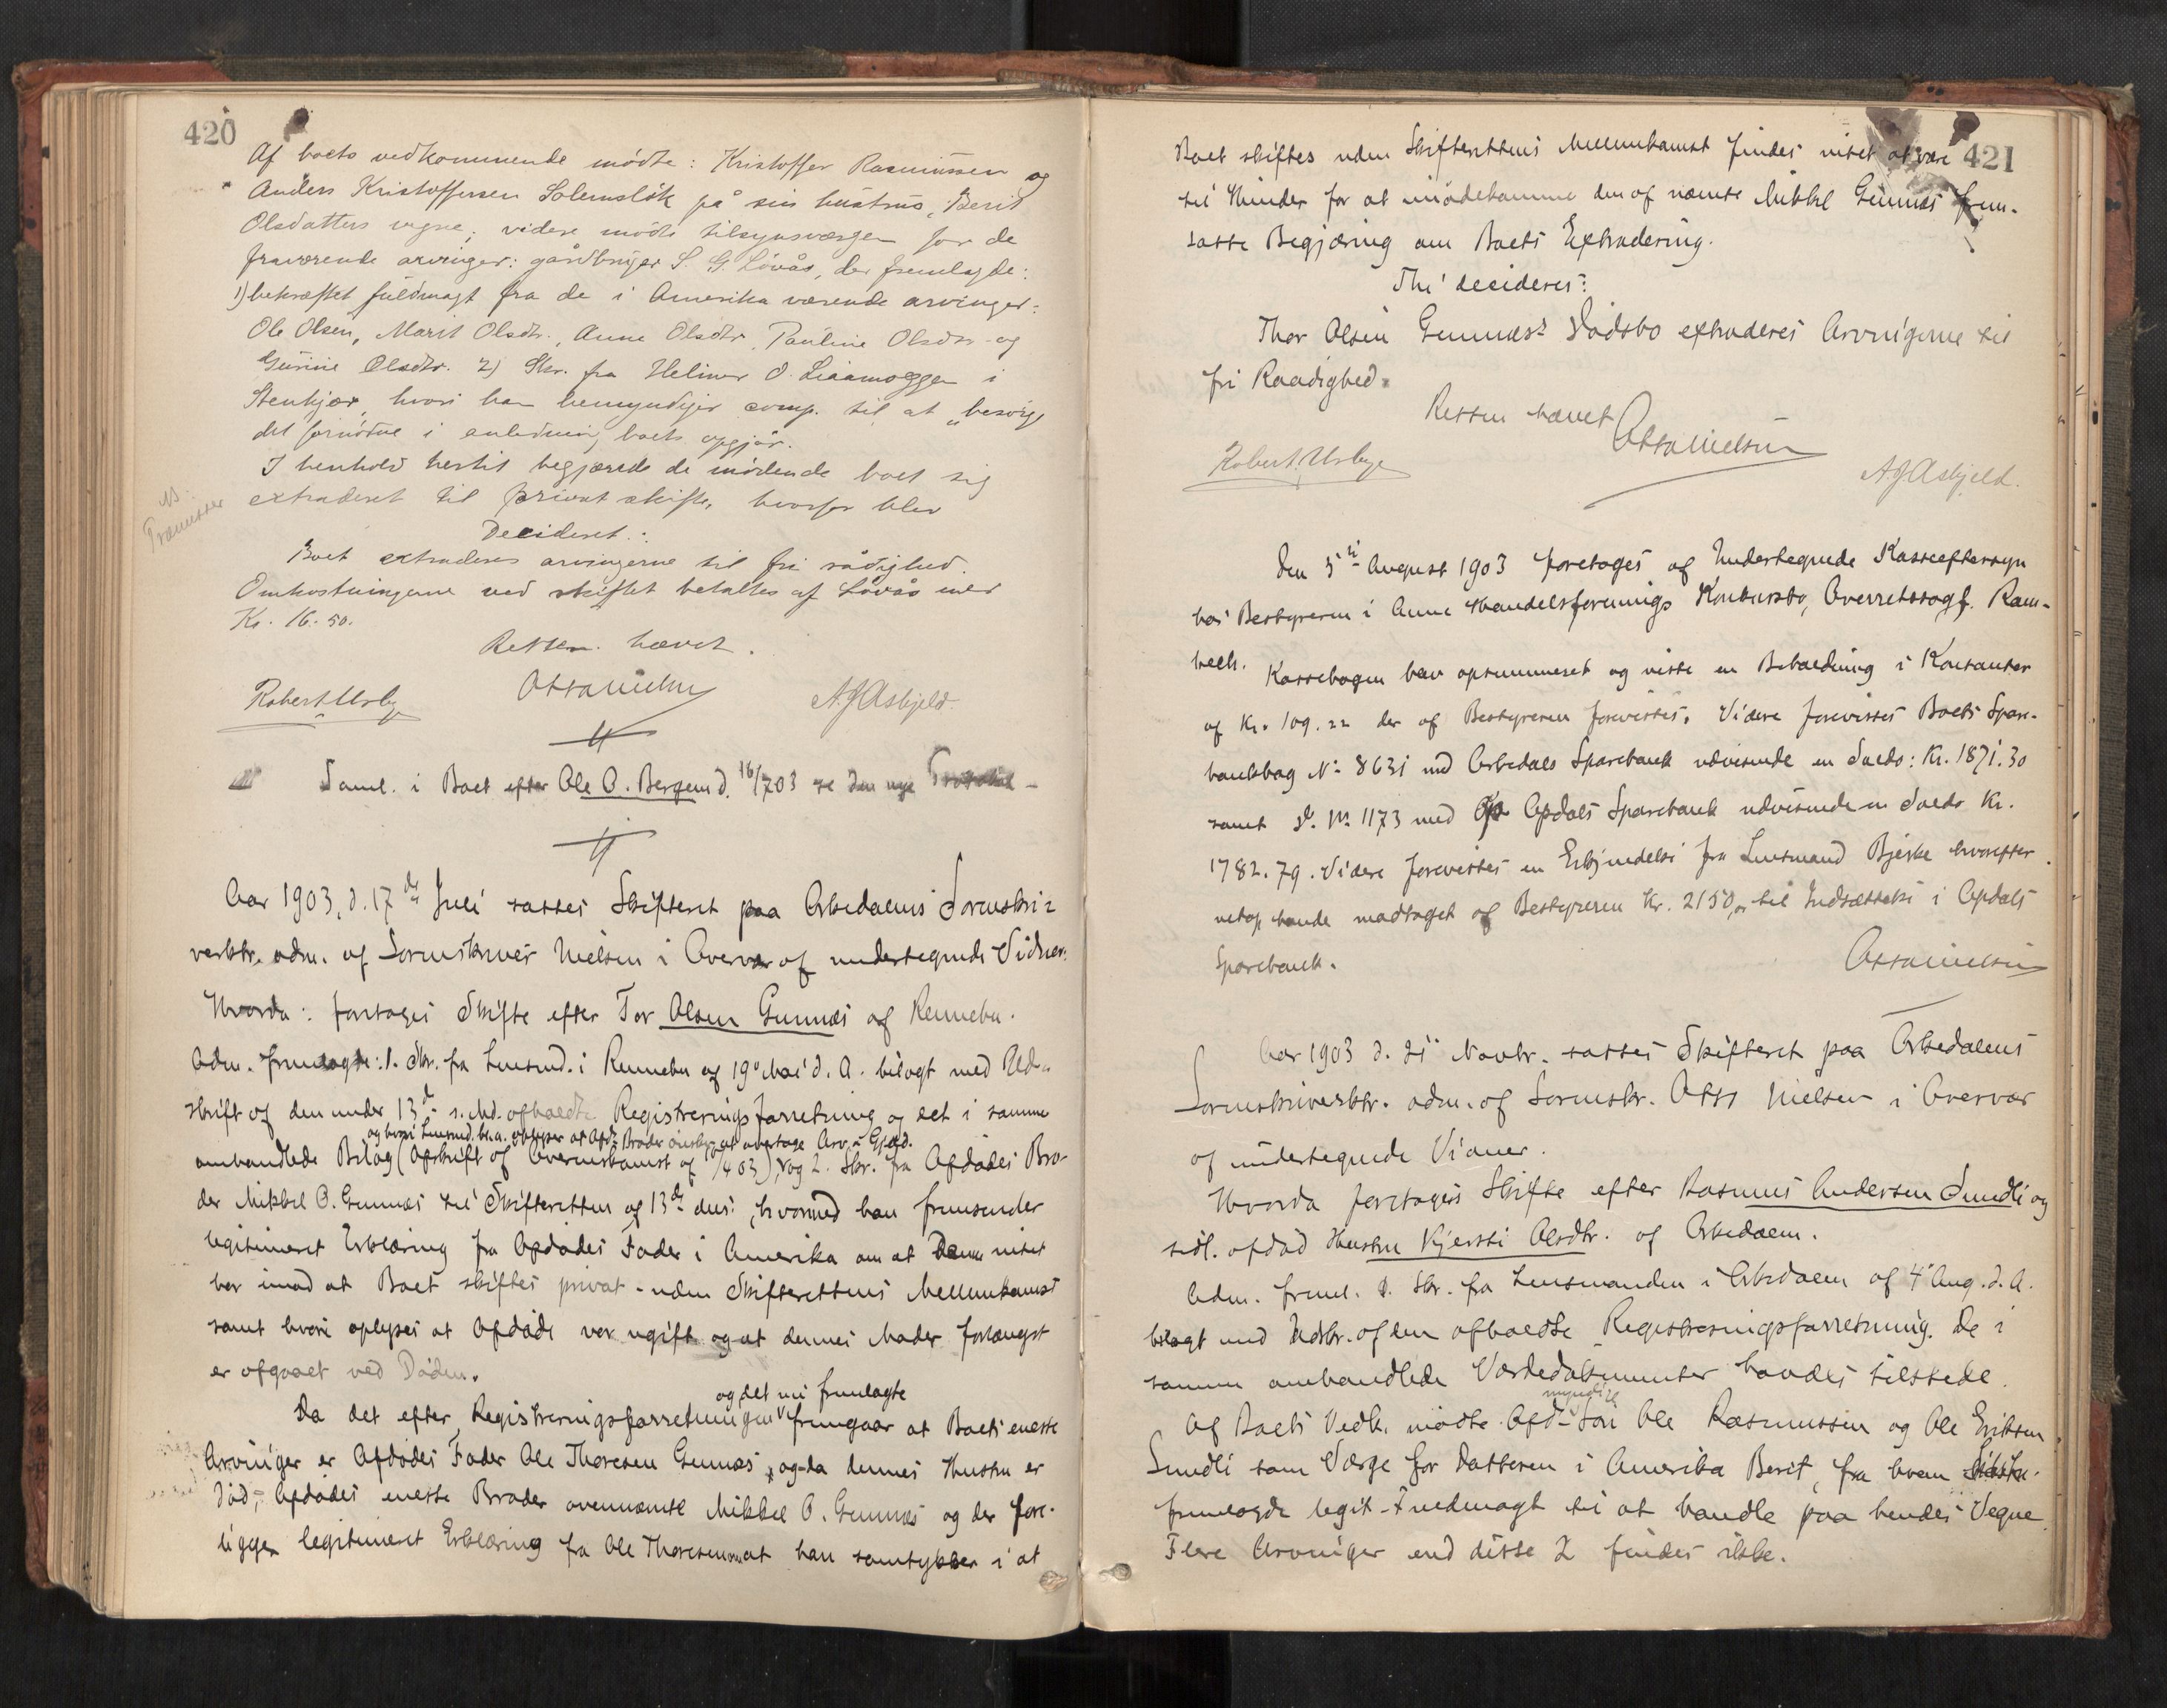 420
Af boets vedkommende mödte: Kristoffer Rasmussen og
Anders Kristoffersen Solemslök på sin hustrus, Berit
Olsdatters vegne; videre mödte tilsynsværgen for de
fraværende arvinger: gårdbruger S. G. Lövås, der fremlagde:
1) bekræftet fuldmagt fra de i Amerika værende arvinger:
Ole Olsen, Marit Olsdtr., Anne Olsdtr, Pauline Olsdtr og
Gurine Olsdtr. 2) Skr. fra Helmer O. Liaamoggen i
Stenkjær, hvori han bemyndiger comp. til at "besörge
det fornödne i anledning boets opgjör.
I henhold hertil begjærede de mödende boet sig
extraderet til privat skifte, hvorfor blev
Decideret:
Boet extraderes arvingerne til fri rådighed.
Omkostningerne ved skiftet betaltes af Lövås med
Kr. 16.50.
Retten hævet.
Robert Usbye Otto Nielsen A J Asbjeld.
Saml. i Boet efter Ole O. Bergem d. 16/7 03 se den nye Protokol -
Aar 1903, d. 17de Juli sattes Skifteret paa Orkedalens Sorenskri-
verktr. adm. af Sorenskriver Nielsen i Overvær af undertegnede Vidner.
Hvorda: foretoges Skifte efter Tor Olsen Gunnæs af Rennebu.
Adm. fremlagde: 1. Skr. fra Lensmd. i Rennebu af 19de Mai d. A. bilagt med Ud-
skrift af den under 13de s. Md. afholdte Registreringsforretning og det i samme
og hvori Lensmd. bl.a. oplyser at Afd. Broder önsker at overtage Arv & Gjæld.
omhandlede Bilag (Afskrift af Overenskomst af /4 03), og 2. Skr. fra Afdödes Bro-
der Mikkel O. Gunnæs til Skifteretten af 13de ds., hvormed han fremsender
legitimeret Erklæring fra Afdödes Fader i Amerika om at Denne intet
har imod at Boet skiftes privat - uden Skifterettens Mellemkomst
samt hvori oplyses at Afdöde var ugift og at dennes Moder forlængst
er afgaaet ved Döden.
og det nu fremlagte
Da det efter Registreringsforretningen fremgaar at Boets eneste
Arvinger er Afdödes Fader Ole Thoresen Gunnæs, og da dennes Hustru er
död, - Afdödes eneste Broder ovennævnte Mikkel O. Gunnæs og der fore-
ligger legitimeret Erklæring fra Ole Thoresen om at han samtykker i at
421
Boet skiftes uden Skifterettens Mellemkomst findes intet at være
til Hinder for at imödekomme den af nævnte Mikkel Gunnæs frem-
satte Begjæring om Boets Extradering.
Thi decideres:
Thor Olsen Gunnæs's Dödsbo extraderes Arvingerne til
fri Raadighed.
Retten hævet
Otto Nielsen
Robert Usbye A J Asbjeld.
Den 5te August 1903 foretoges af Undertegnede Kasseeftersyn
hos Bestyreren i Anne Handelsforenings Konkursbo, Overretssagf. Ram-
bech. Kassebogen blev opsummeret og viste en Beholdning i Kontanter
af Kr. 109.22 der af Bestyreren forevistes. Videre forevistes Boets Spare-
bankbog No 8631 med Orkedals Sparebank udvisende en Saldo: Kr. 1871.30
samt do. No 1173 med Opdals Sparebank udvisende en Saldo Kr.
1782.79. Videre forevistes en Erkjendelse fra Lensmand Bjerke hvorefter
netop havde modtaget af Bestyreren Kr. 2150,00 til Indsættelse i Opdals
Sparebank.
Otto Nielsen
Aar 1903 d. 21de Novbr. sattes Skifteret paa Orkedalens
Sorenskriverktr. adm. af Sorenskr. Otto Nielsen i Overvær
af undertegnede Vidner.
Hvorda foretoges Skifte efter Rasmus Andersen Sundli og
tidl. afdöd Hustru Kjersti Olsdtr. af Orkedalen.
Adm. freml. 1. Skr. fra Lensmanden i Orkedalen af 4de Aug. d. A.
bilagt med Udskr. af den afholdte Registreringsforretning. De i
samme omhandlede Værdedokumenter havdes tilstede.
myndige
Af Boets Vedk. mödte Afd. Sön Ole Rasmussen og Ole Eriksen
Sundli som Værge for Datteren i Amerika Berit, fra hvem
fremlagde legit. Fuldmagt til at handle paa hendes Vegne.
Flere Arvinger end disse 2 findes ikke.